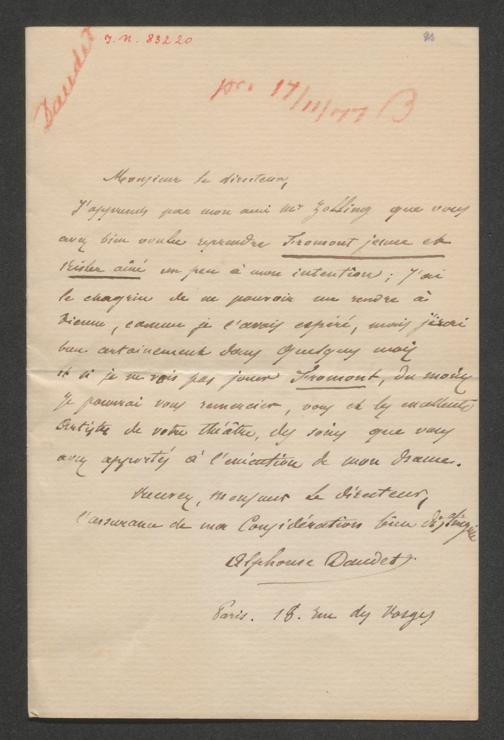 Daudet
I.N. 83220
pr. 17/11/77 B
Monsieur le directeur,
J'apprends par mon ami Mr Zolling que vous
avez bien voulu reprendre Fromont jeune et
Risler aîné un peu à mon intention ; J'ai
le chagrin de ne pouvoir me rendre à
Vienne, comme je l'avais espéré, mais j'irai
bien certainement dans quelques mois
et si je ne vois pas jouer Fromont, du moins
je pourrai vous remercier, vous et les excellents
artistes de votre théâtre, des soins que vous
avez apportés à l'exécution de mon drame.
Veuillez, Monsieur le Directeur,
l'assurance de ma Considération bien distinguée
Alphonse Daudet.
Paris. 18. rue des Vosges